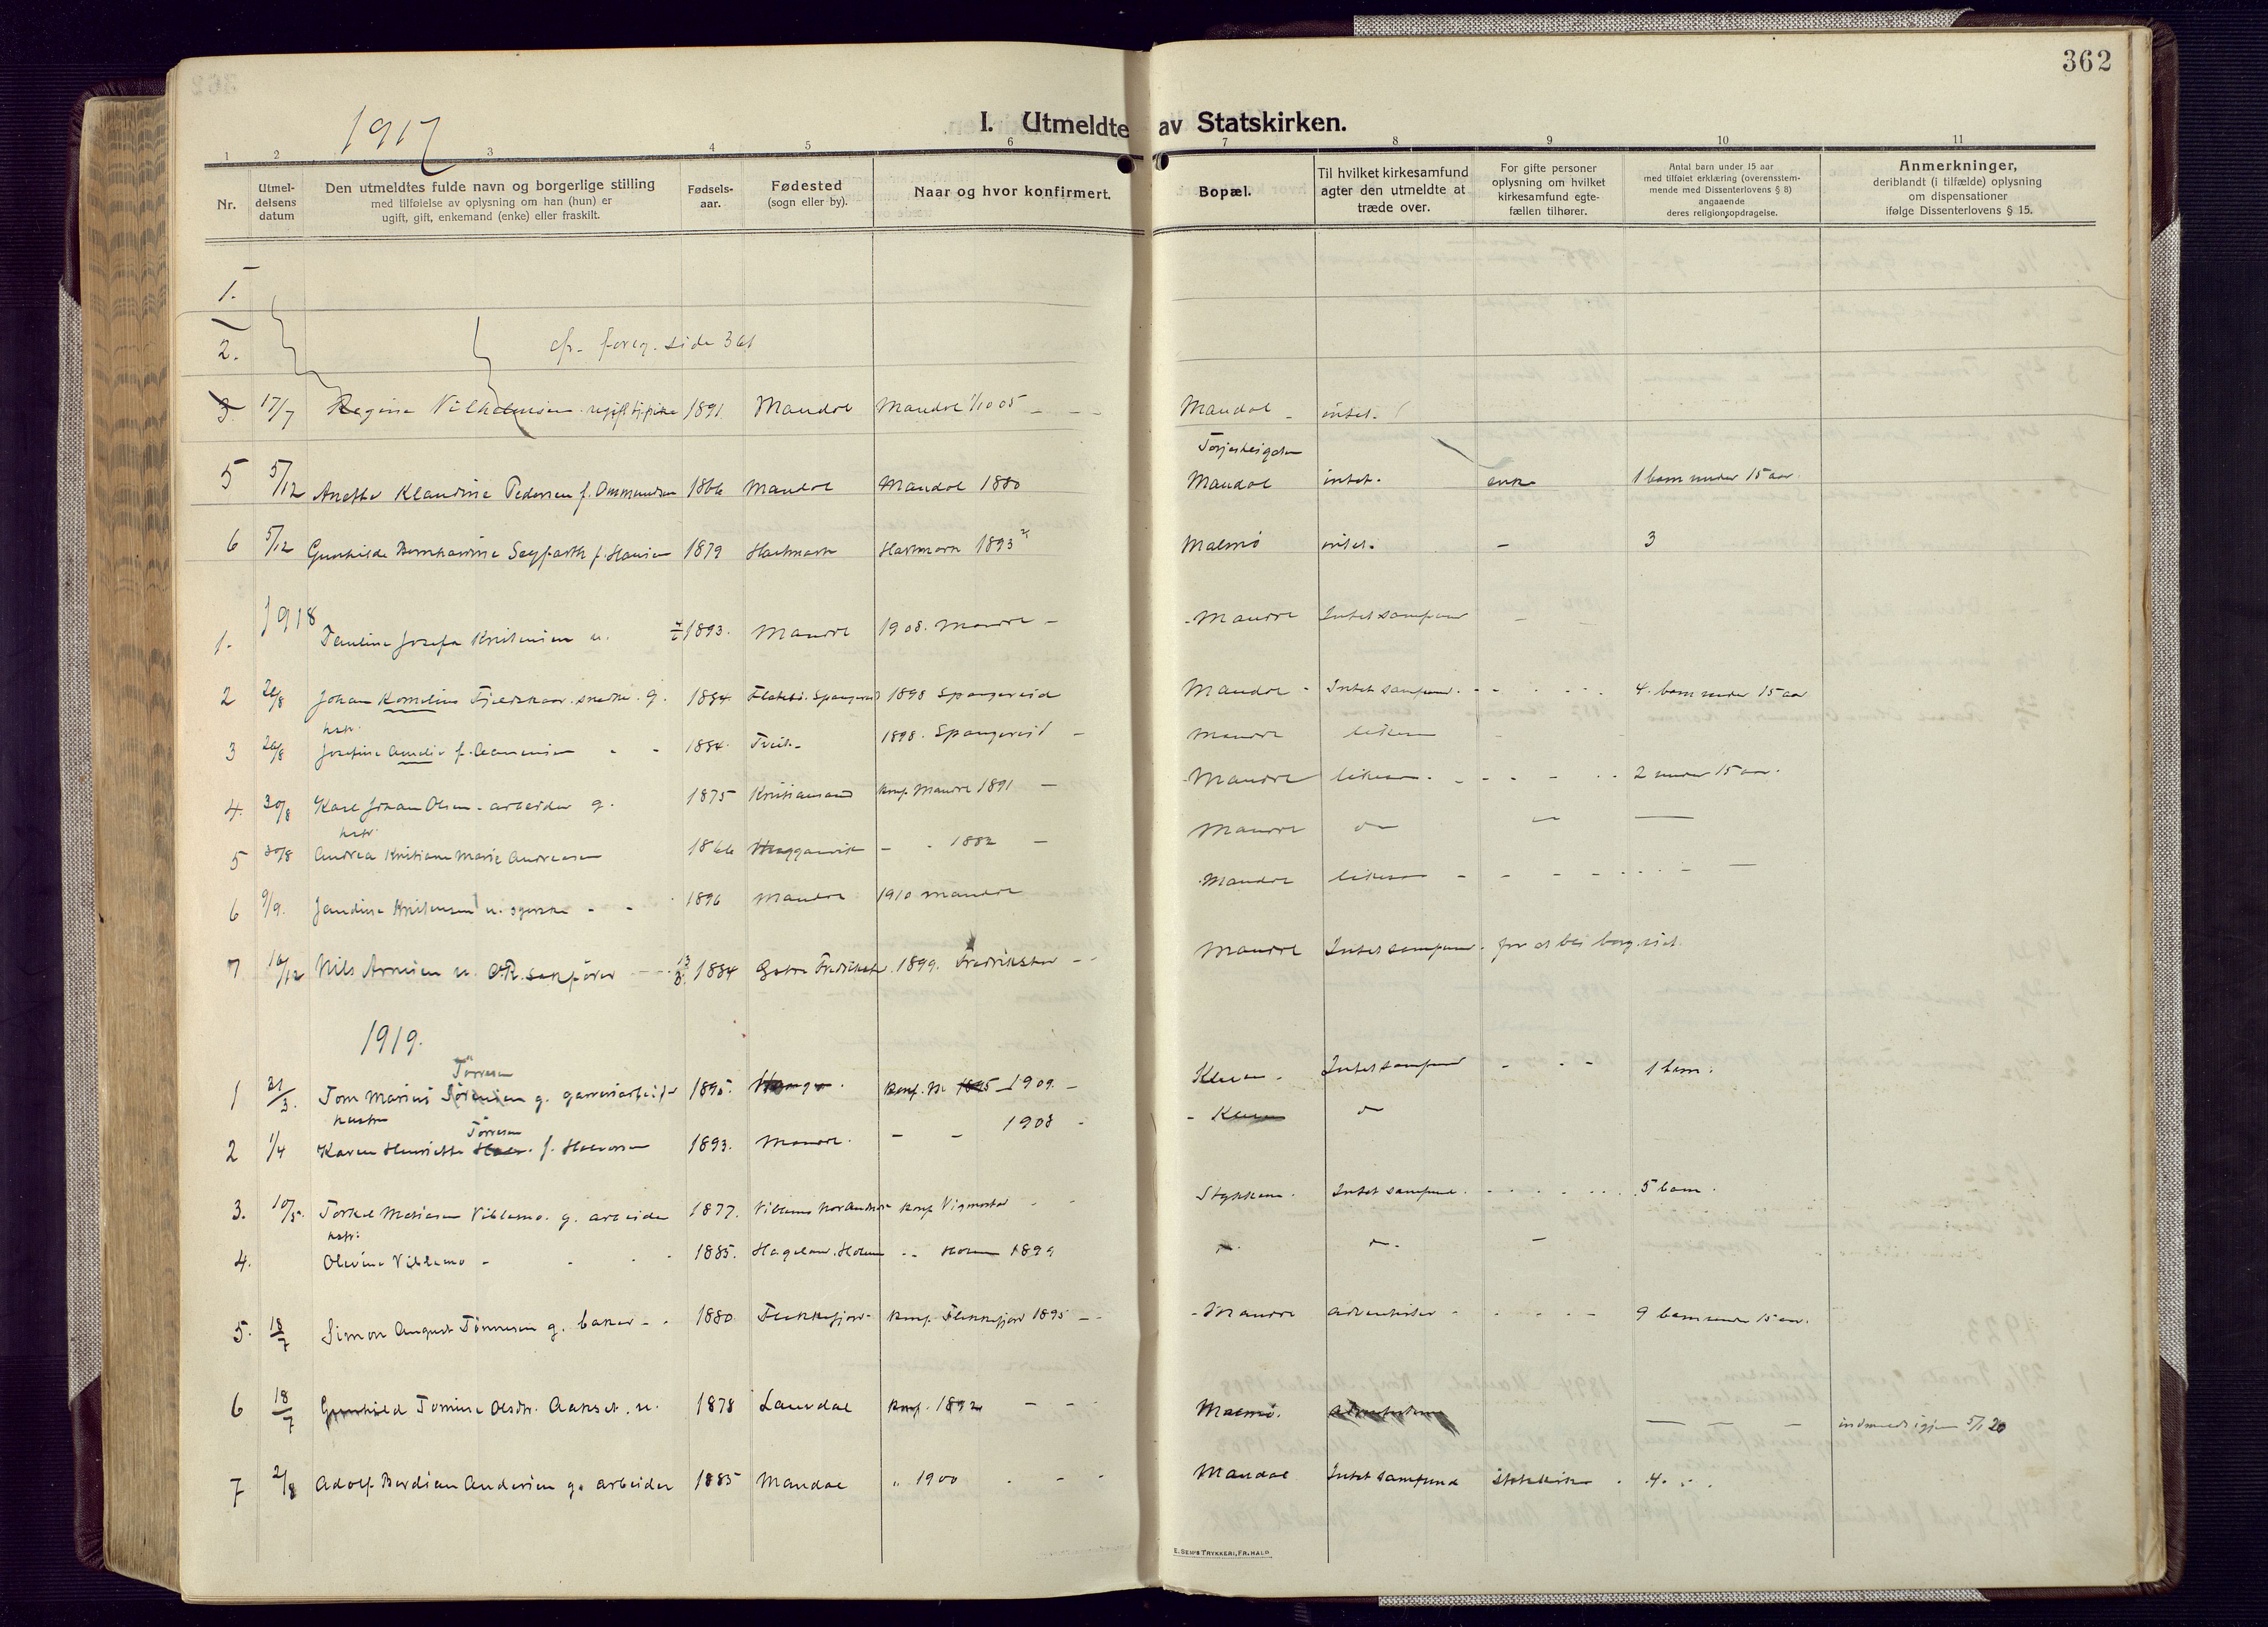 362
1917
I. Utmeldte av Statskirken.
1 2 3 4 5 6 7 8 9 10 11
Nr.
Utmel-
delsens
datum
Den utmeldtes fulde navn og borgerlige stilling
med tilføielse av oplysning om han (hun) er
ugift, gift, enkemand (enke) eller fraskilt.
Fødsels-
aar.
Fødested
(sogn eller by).
Naar og hvor konfirmert.
Bopæl.
Til hvilket kirkesamfund
agter den utmeldte at
træde over.
For gifte personer
oplysning om hvilket
kirkesamfund egte-
fællen tilhører.
Antal barn under 15 aar
med tilføiet erklæring (overensstem-
mende med Dissenterlovens § 8)
angaaende
deres religionsopdragelse.
Anmerkninger,
deriblandt (i tilfælde) oplysning
om dispensationer
ifølge Dissenterlovens § 15.
1.
2. cfr. foreg. side 361
3 17/7 Regine Vilhelmsen ugift 1891 Mandal Mandal 1/10 05 Mandal intet.
5 5/12 Anette Klaudine Pedersen f. Ommundsen 1866 Mandal Mandal 1880 Mandal intet. enke 1 barn under 15 aar.
6 5/12 Gunhilde Bernhardine Seyfarth f. Hansen 1879 Halsmark Halsmark 1893 Malmø intet. - 3
1918
1. Pauline Josefa Kristensen u. 1893. Mandal 1908. Mandal - Mandal Intet samfund -
2 20/8 Johan Kornelius Fjeldskaar. snekker. g. 1884 Spangereid 1898 Spangereid Mandal - Intet samfund. 4. barn under 15 aar
3 20/8 hstr. Josefine Amalie f. 1884. Tveit 1898. Spangereid - Mandal likesaa
4. 30/8 Karl Johan Olsen - arbeider g. 1875 Kristiansand konf. Mandal 1891 - Mandal likesaa. 2 under 15 aar.
5 30/8 hstr. Andrea Kristiane Marie Andreassen 1866 - 1882 - Mandal do
6 9/9. Jendine Kristensen u. 1896 Mandal 1910 Mandal Mandal likesaa
7 10/12 Nils Arnesen u. O.R.sakfører 1884 Fredrikstad. 1899. Fredrikstad Mandal Intet samfund. for at bli borg. viet.
1919.
1 21/3. Tom Marius Tørresen g. garveriarbeider 1895. konf. M. 1909. Kleven. Intet samfund 1 barn.
2 1/4 hustru Karen Henriette Tørresen f. Halvorsen 1893. Mandal. - - 1908 - Kleven do
3. 10/5. Torkel Mathiesen Viblemo. g. arbeider 1877. konf. Vigmostad Støkkan. Intet samfund. 5 barn.
4. hstr: Olevine Viblemo - 1885. Hageland. Holum - Holum 1899 do.
5. 18/7 Simon August Tønnesen g. baker - 1880 Flekkefjord konf. Flekkefjord 1895 - Mandal adventister 9 barn under 15 aar.
6 18/7 Gunhild Tomine Olsdtr. Aakset. u. 1878 Laudal konf. 1892 - Malmø. indmeldt igjen 5/1 20
7 2/8 Adolf Berdian Andersen g. arbeider 1885 Mandal „ 1900 Mandal Intet samfund statskirken. 4.
E. SEMS TRYKKERI, FR.HALD